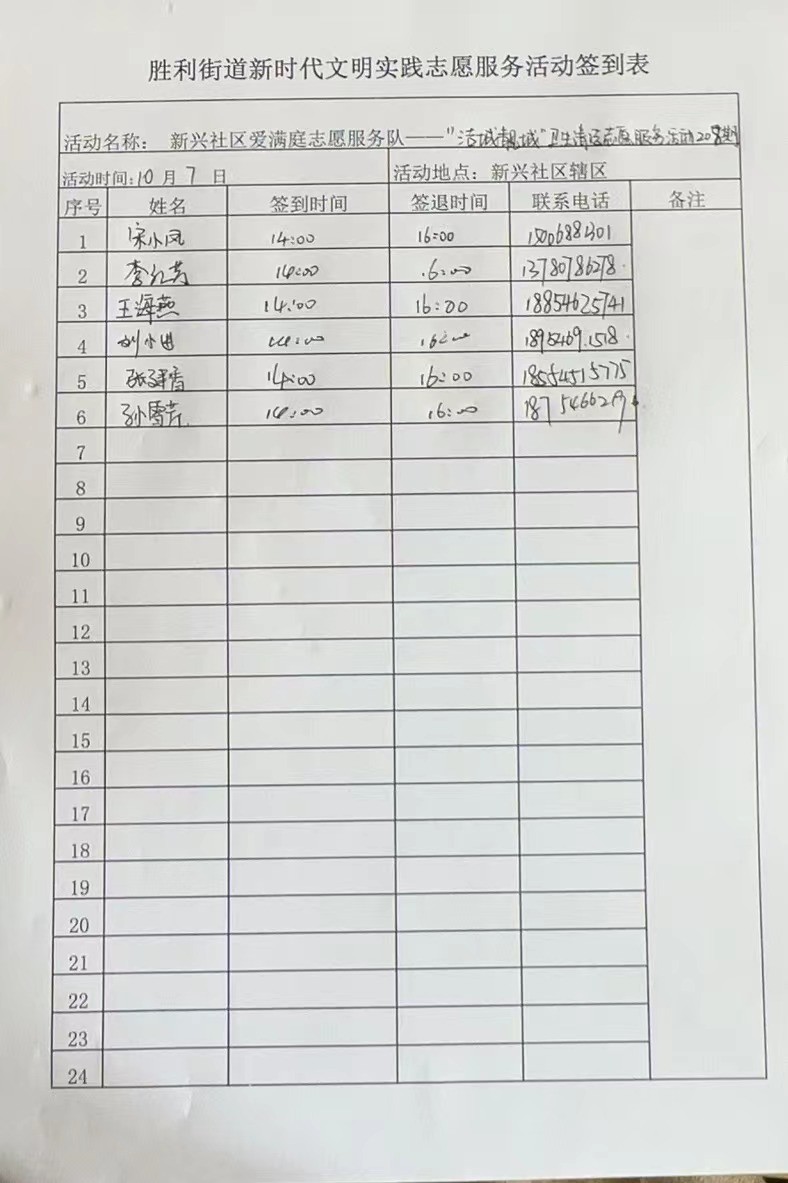 胜利街道新时代文明实践志愿服务活动签到表
活动名称： 新兴社区爱满庭志愿服务队——“洁城靓城”卫生清洁志愿服务活动208期
活动时间:10月7日 活动地点：新兴社区辖区
序号 姓名 签到时间 签退时间 联系电话 备注
1 宋小凤 14:00 16:00
2 14:00 16:00 13780786278
3 王海燕 14:00 16:00 18854625741
4 14:00 16:00
5 14:00 16:00 18554515775
6 孙雪芹 14:00 16:00
7
8
9
10
11
12
13
14
15
16
17
18
19
20
21
22
23
24